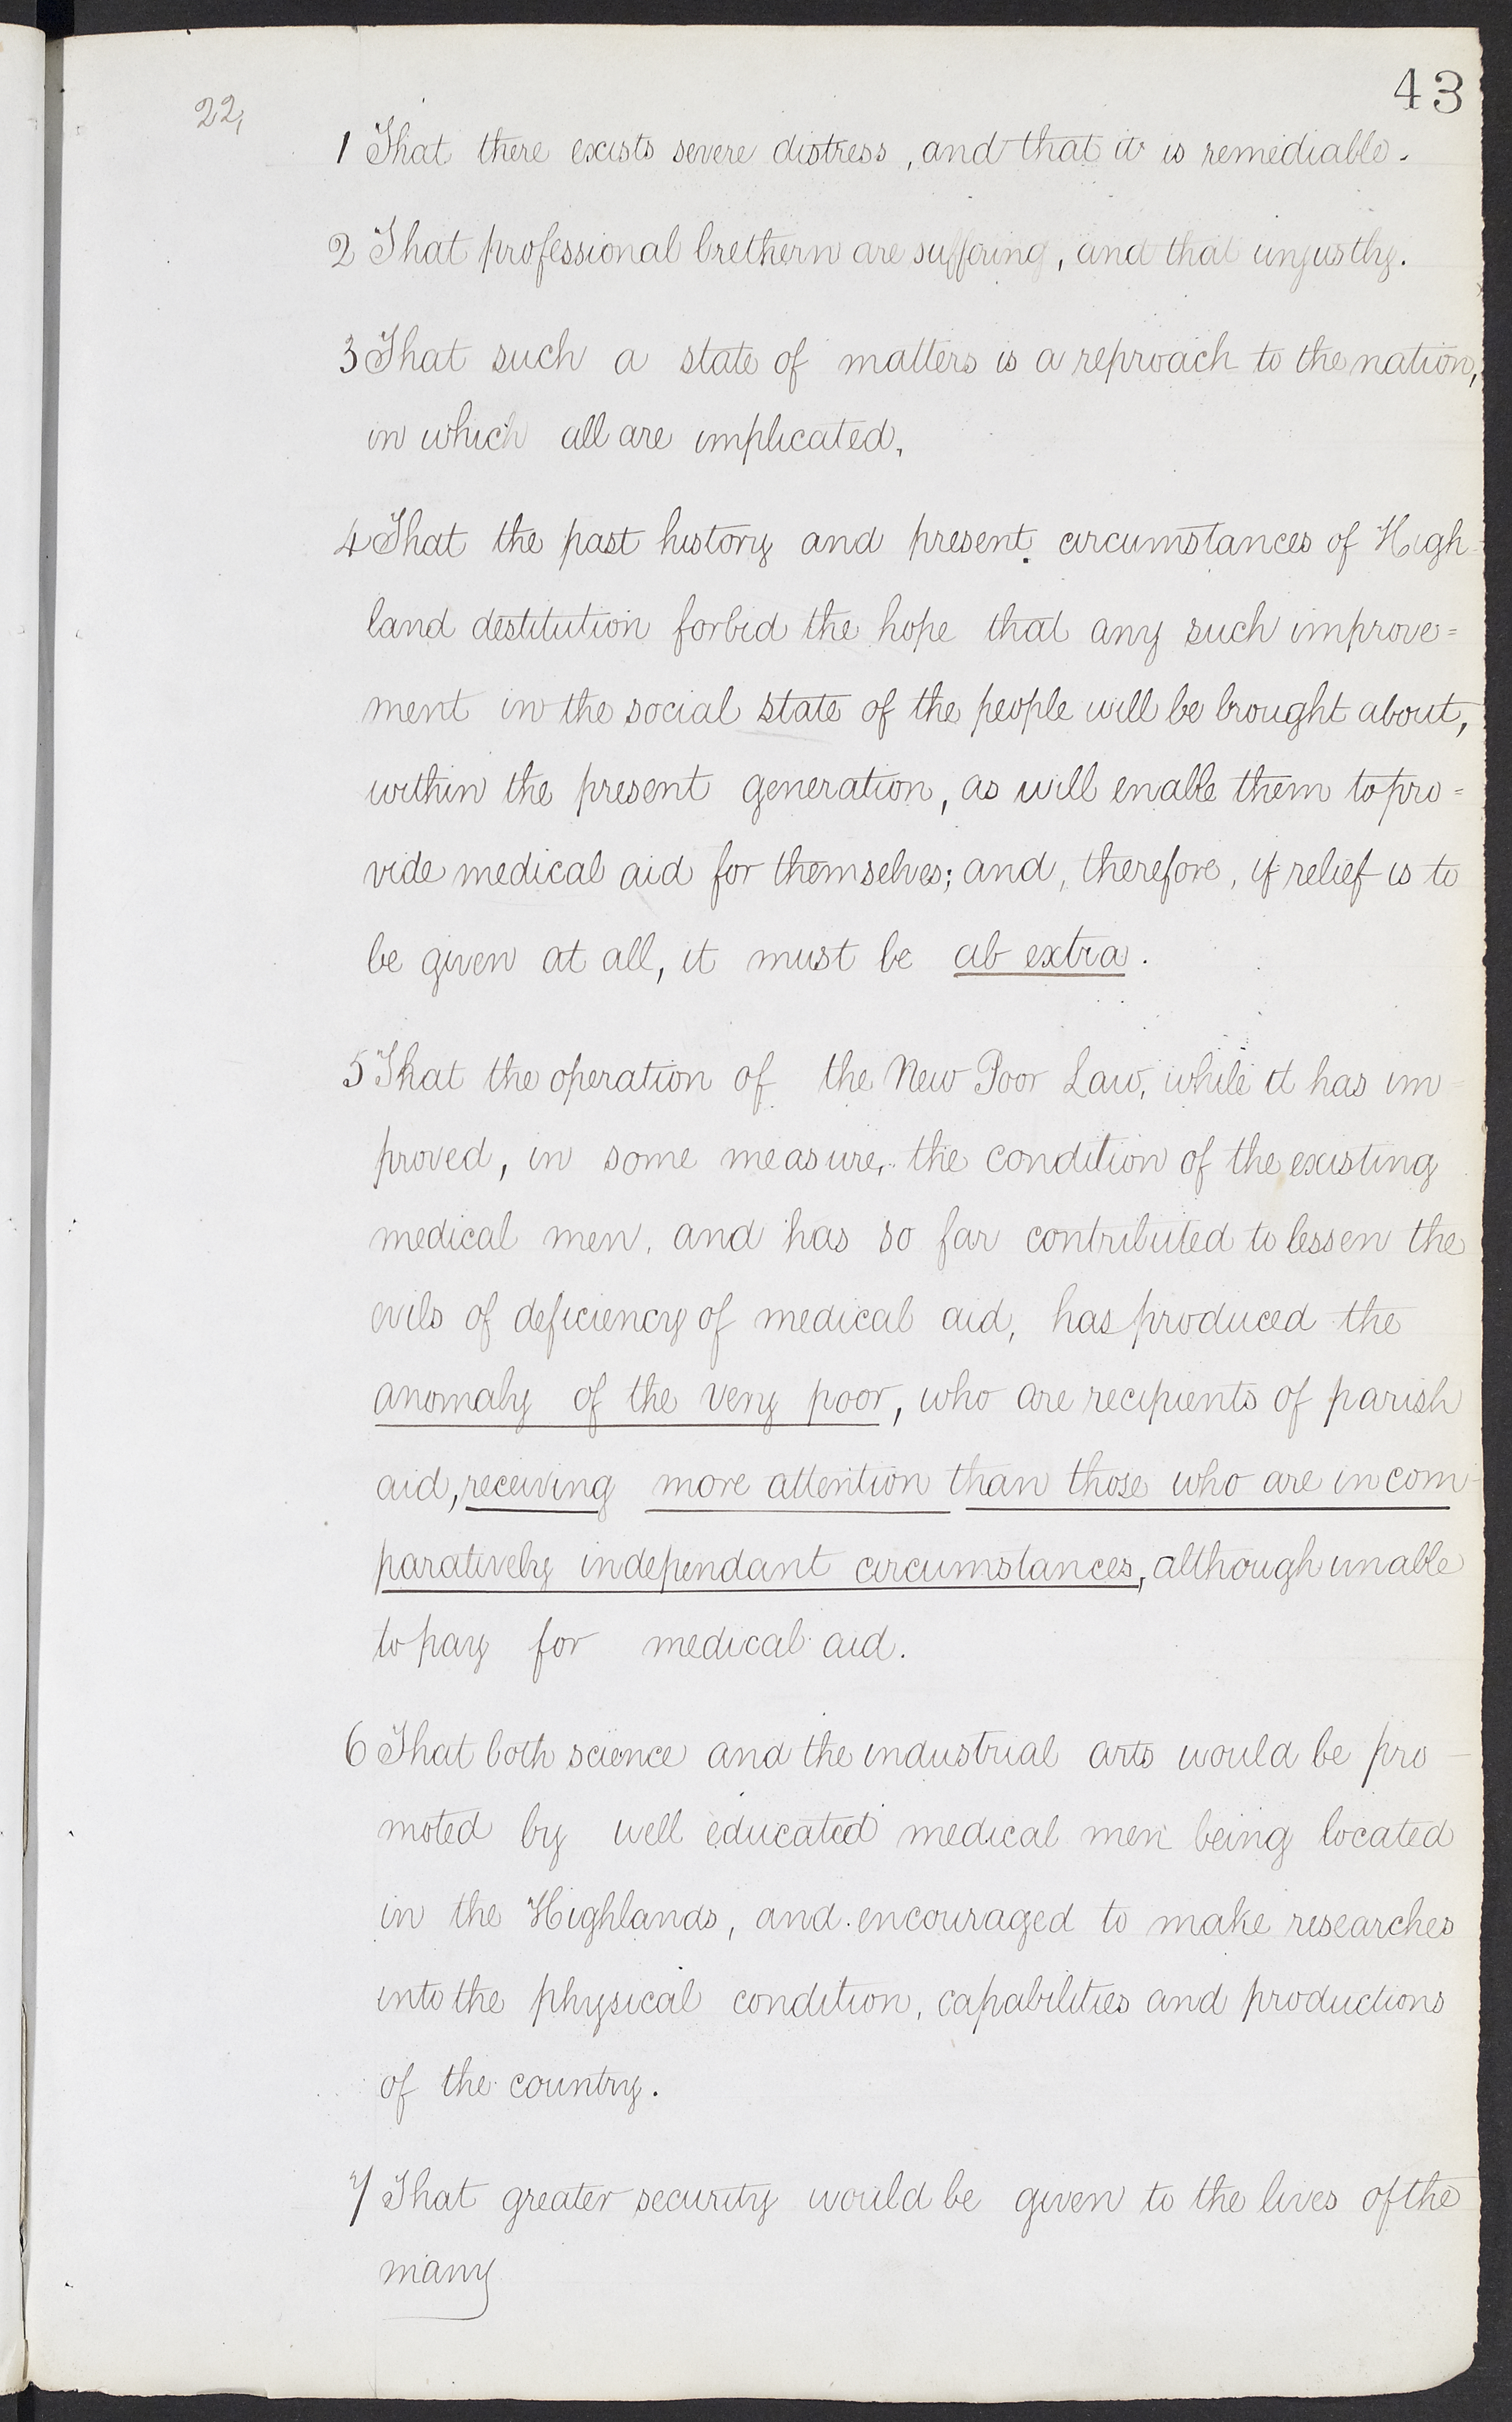 43
22,
1 That there exists severe distress, and that it is remediable.
2 That professional brethern are suffering, and that unjustly.
3 That such a state of matters is a reproach to the nation,
in which all are implicated,
4 That the past history and present circumstances of High-
land destitution forbid the hope that any such improve=
ment in the social state of the people will be brought about,
within the present generation, as will enable them to pro=
vide medical aid for themselves; and, therefore, if relief is to
be given at all, it must be ab extra.
5 That the operation of the New Poor Law, while it has im-
proved, in some measure, the condition of the existing
medical men, and has so far contributed to lessen the
evils of deficiency of medical aid, has produced the
anomaly of the very poor, who are recipients of parish
aid, receiving more attention than those who are in com-
paratively independant circumstances, although unable
to pay for medical aid.
6 That both science and the industrial arts would be pro-
moted by well educated medical men being located
in the Highlands, and encouraged to make researches
into the physical condition, capabilities and productions
of the country.
7 That greater security would be given to the lives of the
many